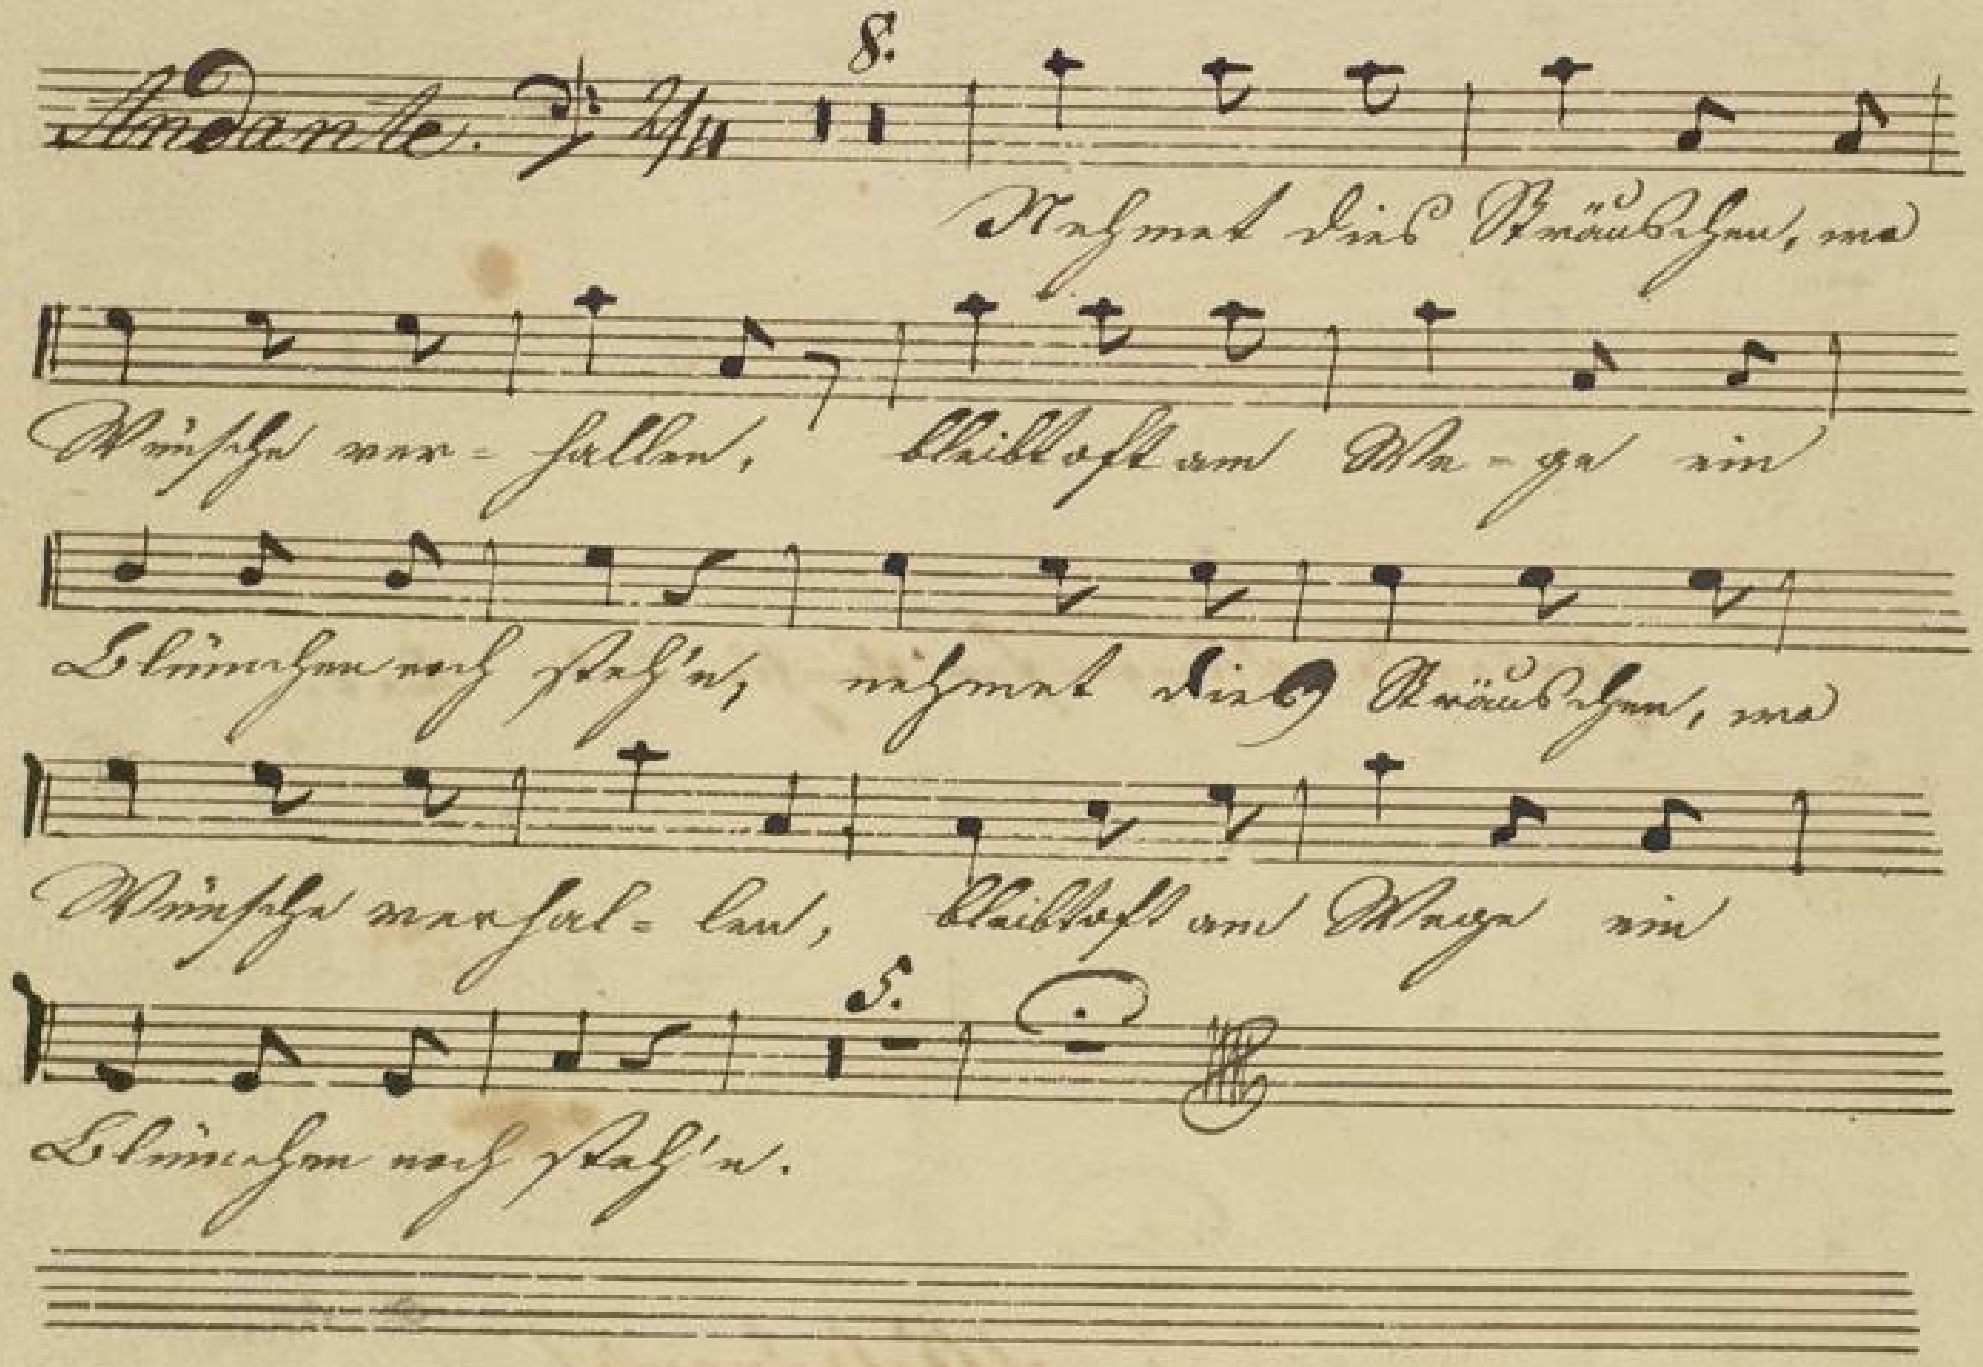 Andante. 2/4 8.
Nehmet dies Sträuschen, wo
Wünsche ver- hallen, bleibt oft am We-ge ein
Blümchen noch steh'n, nehmet dies Sträuschen, wo
Wünsche verhal- len, bleibt oft am Wege ein
5.
Blümchen noch steh'n.